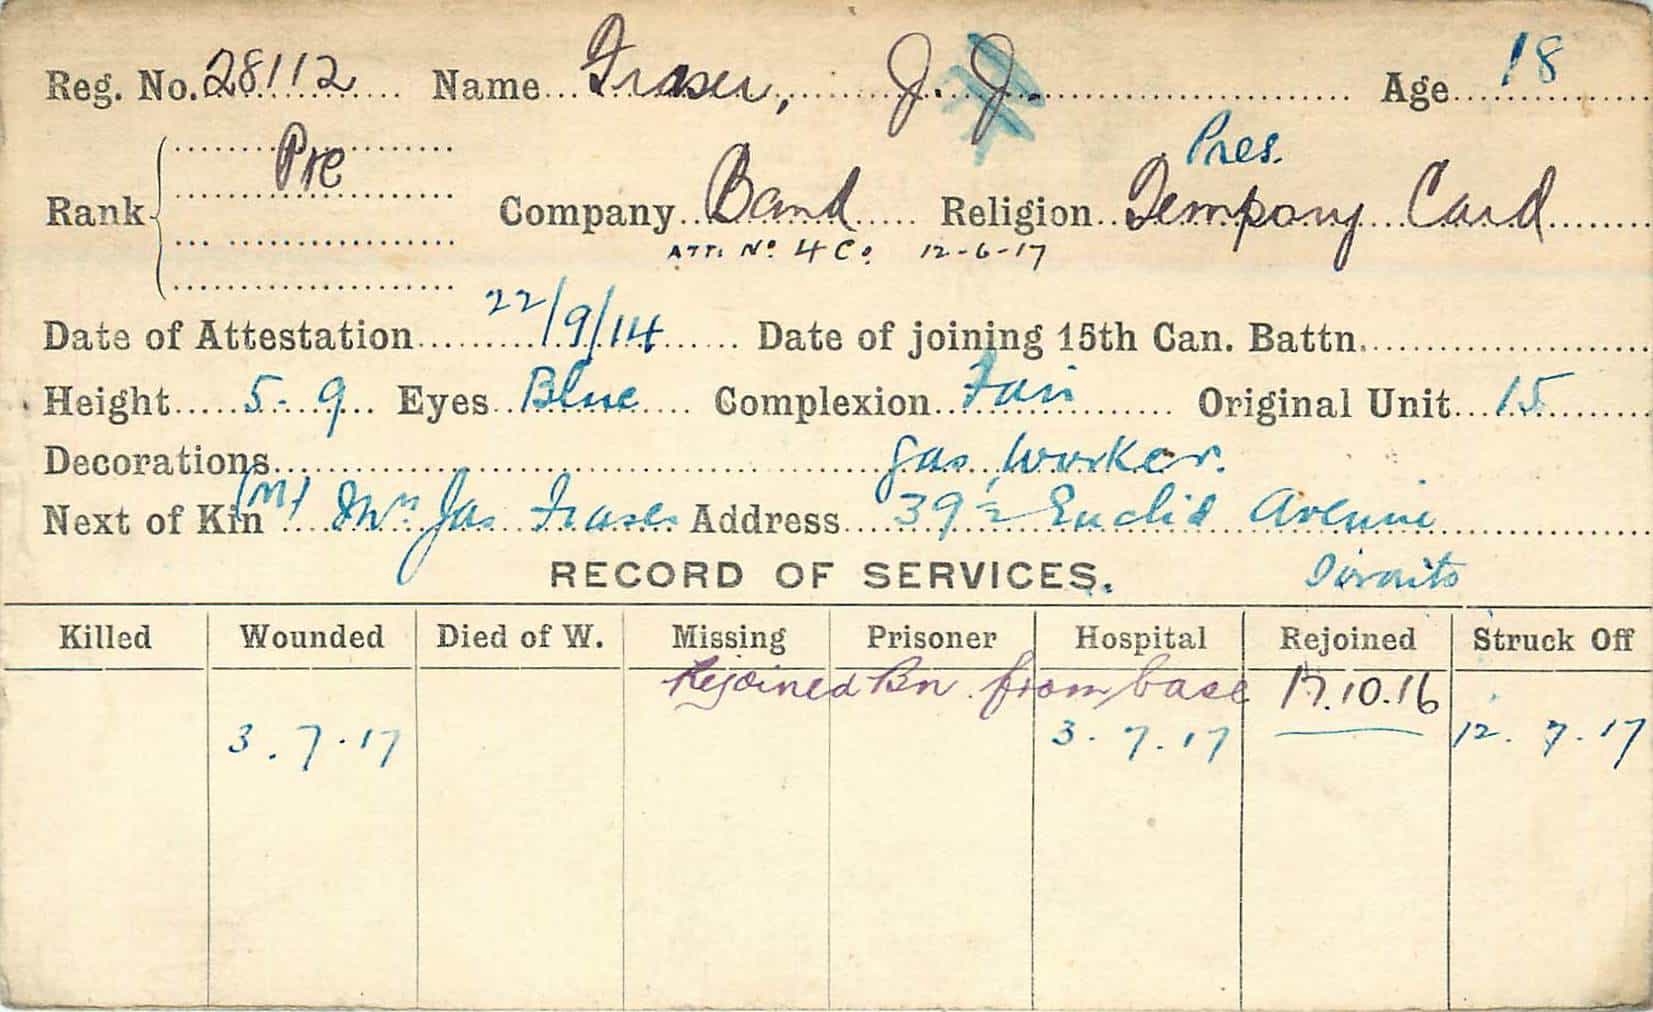 Reg. No. 28112 Name Fraser, J. J. Age 18
Pres.
Rank Pte Company Band Religion Tempory Card
ATT. No. 4 Co. 12-6-17
Date of Attestation 22/9/14 Date of joining 15th Can. Battn.
Height 5-9 Eyes Blue Complexion Fair Original Unit 15
Decorations gas worker.
Next of Kin (M) Mrs Jas Fraser Address 39½ Euclid Avenue
RECORD OF SERVICES. Toronto
Killed Wounded Died of W. Missing Prisoner Hospital Rejoined Struck Off
Rejoined Bn. from base 17.10.16
3.7.17 3.7.17 12.7.17